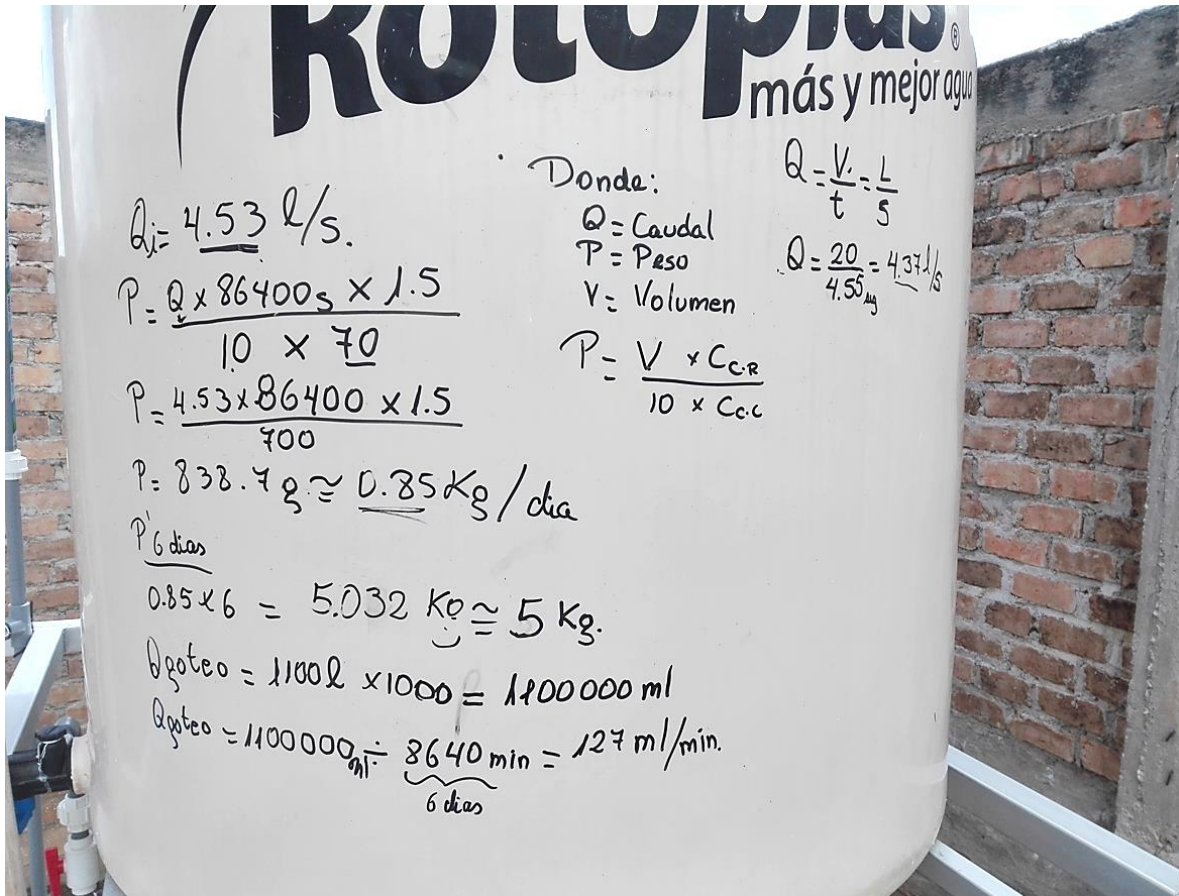 Rotoplas®
más y mejor agua
Qi = 4.53 l/s.
P = Q x 86400s x 1.5 / 10 x 70
P = 4.53 x 86400 x 1.5 / 700
P = 838.7 g ≃ 0.85 Kg / dia
P' 6 dias
0.85 x 6 = 5.032 Kg ≃ 5 Kg.
Qgoteo = 1100 l x 1000 = 1100000 ml
Qgoteo = 1100000 ml ÷ 8640 min = 127 ml/min.
6 dias
Donde:
Q = Caudal
P = Peso
V = Volumen
P = V x Cc.R / 10 x Cc.c
Q = V. / t = L / s
Q = 20 / 4.55 = 4.37 l/s